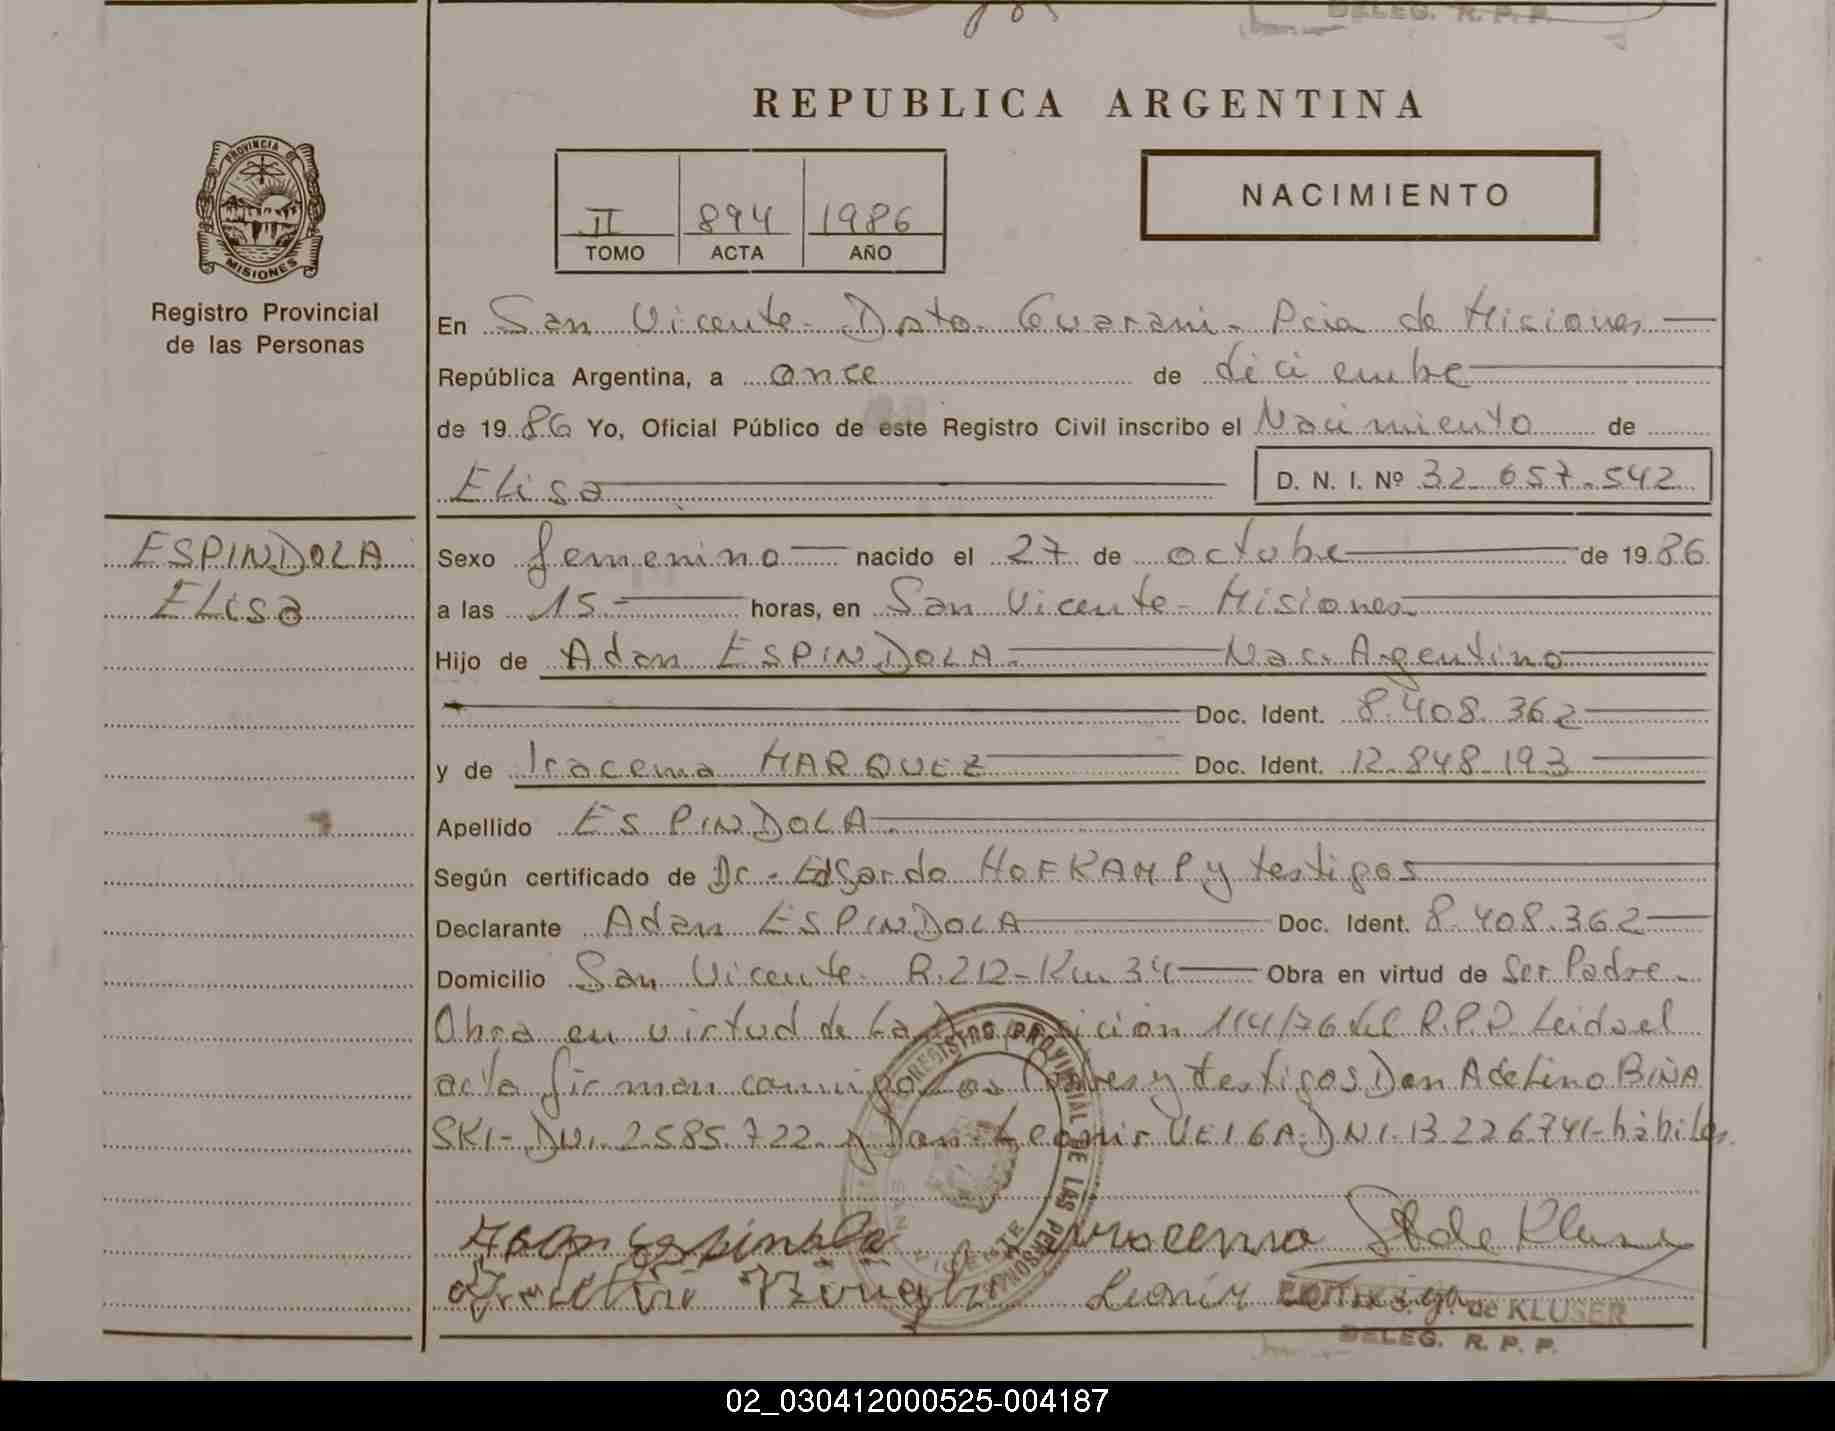 DELEG. R. P. P.
REPUBLICA ARGENTINA
PROVINCIA DE
MISIONES
Registro Provincial
de las Personas
II 894 1986
TOMO ACTA AÑO
NACIMIENTO
En San Vicente - Dpto. Guarani - Pcia de Misiones
República Argentina, a once de diciembre
de 1986 Yo, Oficial Público de este Registro Civil inscribo el Nacimiento de
Elisa D. N. I. Nº 32.657.542
ESPINDOLA
Elisa
Sexo femenino nacido el 27 de octubre de 1986
a las 15 - horas, en San Vicente - Misiones
Hijo de Adan ESPINDOLA. Nac. Argentino
Doc. Ident. 8.408.362
y de Iracema MARQUEZ Doc. Ident. 12.848.193
Apellido ESPINDOLA
Según certificado de Dr. Edgardo HOFKAMP y testigos
Declarante Adan ESPINDOLA Doc. Ident. 8.408.362
Domicilio San Vicente R. 212 - Km 34 Obra en virtud de Ser Padre -
Obra en virtud de La Disposición 114/76 del R.P.P. Leida el
acta firman conmigo los Padres y testigos Don Adelino BINA
SKI - DNI. 2.585.722 y Don Leonir VEIGA. DNI. 13.226.741 - hábiles
REGISTRO PROVINCIAL DE LAS PERSONAS
Adan Espindola Iracema de Kluser
Leonir Veiga
de KLUSER
DELEG. R. P. P.
02_030412000525-004187